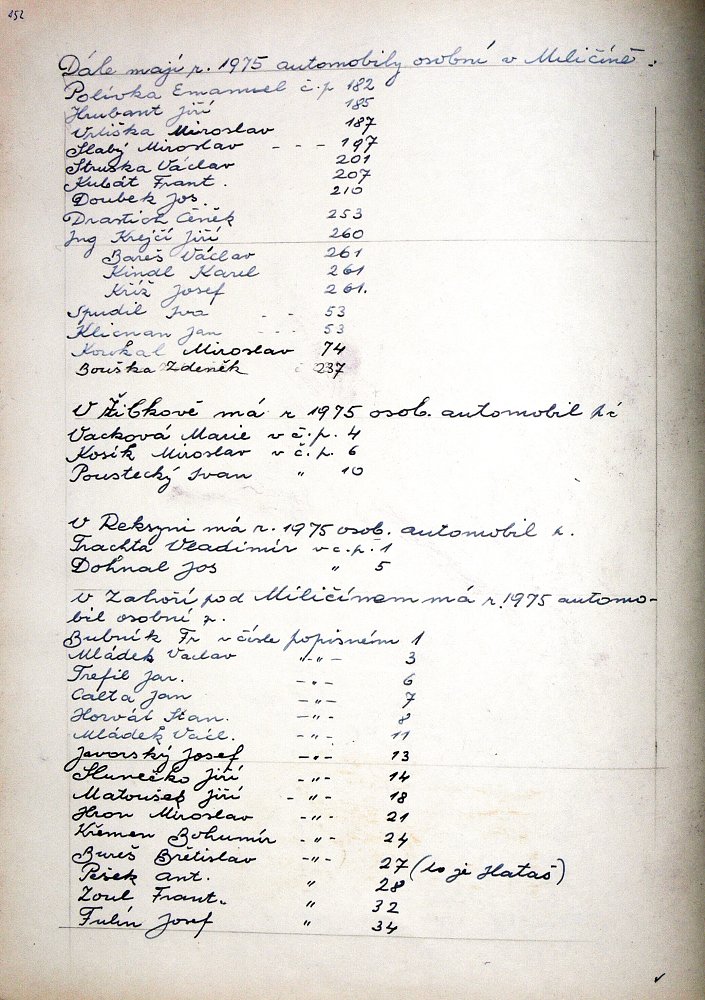 452
Dále mají r. 1975 automobily osobní v Miličíně :
Polívka Emanuel č.p 182
Hrubant Jiří 185
Vrliška Miroslav 187
Slabý Miroslav - - - 197
Struska Václav 201
Kubát Frant. 207
Doubek Jos. 210
Drastich Čeněk 253
Ing Krejčí Jiří 260
Bareš Václav 261
Kindl Karel 261
Kříž Josef 261.
Spudil Iva - - 53
Klicnan Jan - - - 53
Koukal Miroslav 74
Bouška Zdeněk 237
V Žibkově má r 1975 osob. automobil
Vacková Marie v č.p. 4
Kosík Miroslav v č.p. 6
Poustecký Ivan " 10
V Reksyni má r. 1975 osob. automobil
Trachta Vladimír v č.p. 1
Dohnal Jos " 5
V Zahoří pod Miličínem má r. 1975 automo-
bil osobní
Bubník Fr v čísle popisném 1
Mládek Vaclav -"- 3
Trefil Jar. -"- 6
Calta Jan -"- 7
Horvát Stan. -"- 8
Mládek Vacl. -"- 11
Javorský Josef -"- 13
Slunečko Jiří -"- 14
Matoušek Jiří -"- 18
Hron Miroslav -"- 21
Křemen Bohumír -"- 24
Bureš Brětislav -"- 27 (to je Hataš)
Pešek Ant. " 28
Zoul Frant. " 32
Fulín Josef " 34